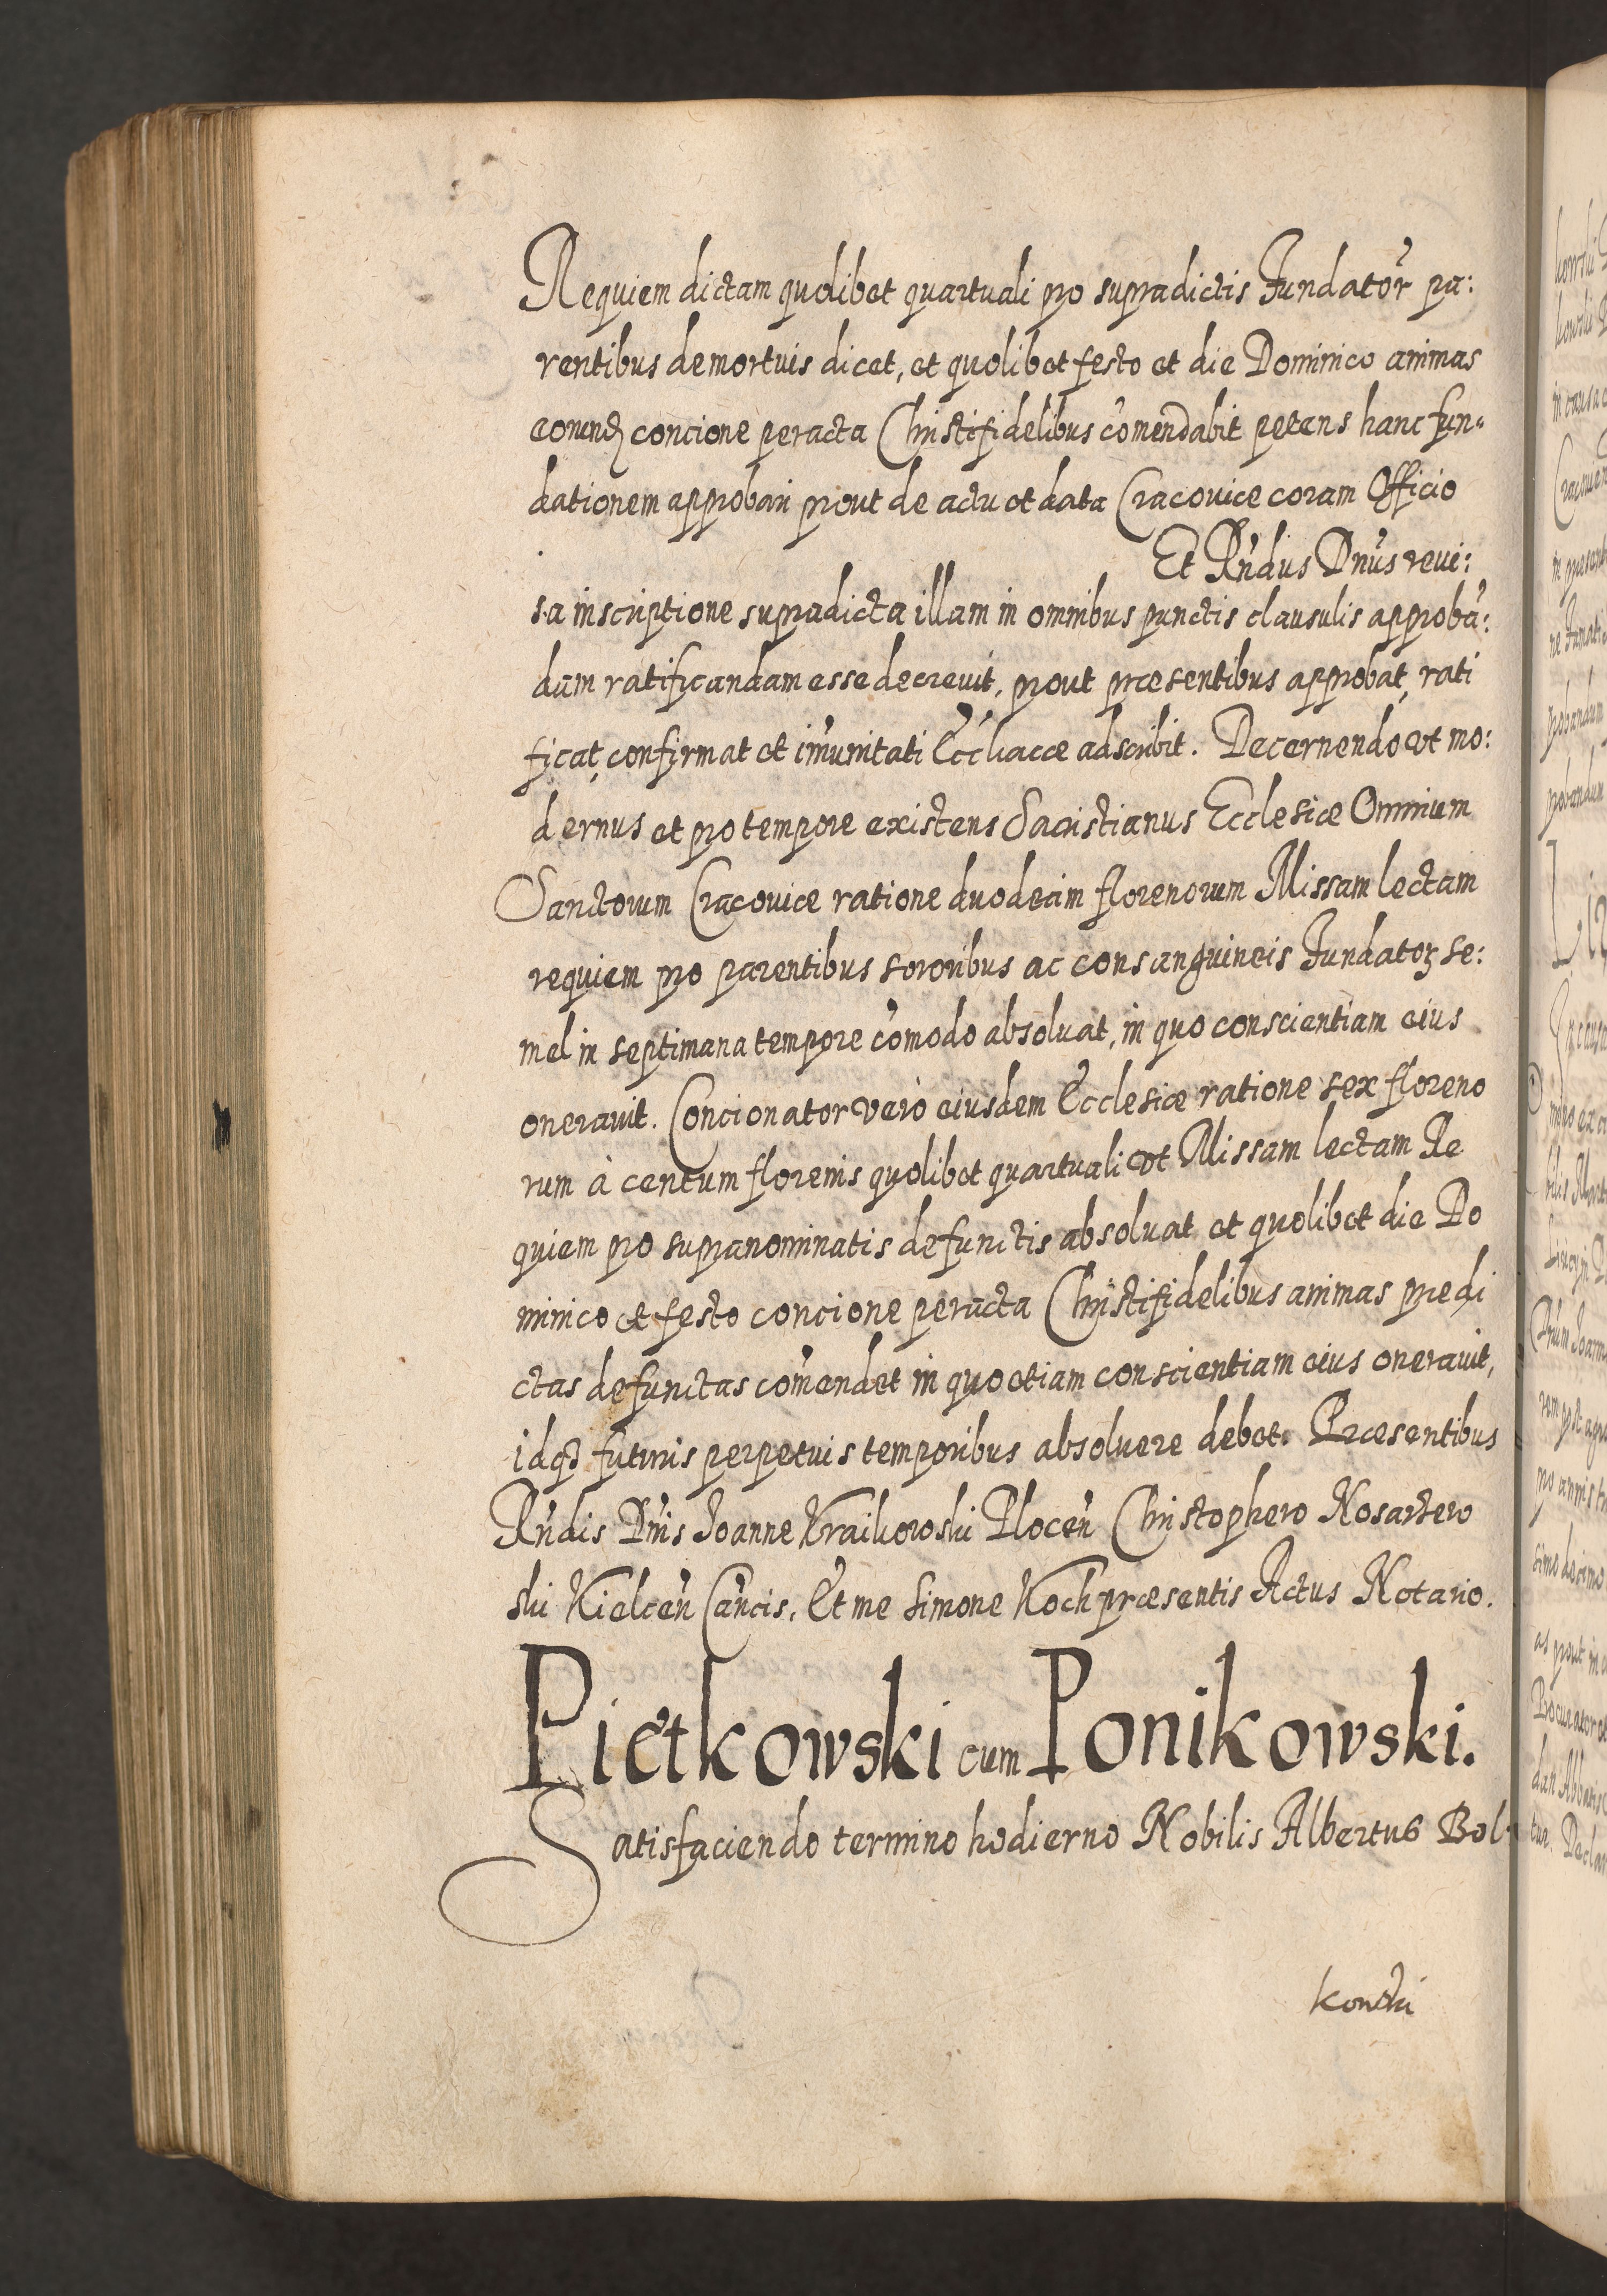 Requiem dictam quolibet quartuali pro supradictis Fundator̃ pa:
rentibus demortuis dicet, et quolibet festo et die Dominico animas
eorund concione peracta Christifidelibus com̃endabit petens hanc fun-
dationem approbari prout de actu et data Cracoviæ coram Officio
Et Rn̄dus Dn̄us revi:
sa inscriptione supradicta illam in omnibus punctis clausulis approbā:
dam ratificandam esse decrevit, prout præsentibus approbat, rati
ficat, confirmat et im̃unitati Eccl̃iacæ adscribit. Decernendo ut mo:
dernus et pro tempore existens Sacristianus Ecclesiæ Omnium
Sanctorum Cracoviæ ratione duodecim florenorum Missam lectam
requiem pro parentibus sororibus ac consanguineis Fundatoꝝ se:
mel in septimana tempore com̃odo absoluat, in quo conscientiam eius
oneravit. Concionator vero eiusdem Ecclesiæ ratione sex floreno
rum à centum florenis quolibet quartuali ut Missam lectam Re
quiem pro supranominatis defunctis absoluat et quolibet die Do
minico et festo concione peracta Christifidelibus animas prædi
ctas defunctas com̃endet in quo etiam conscientiam eius oneravit,
idqꝫ futuris perpetuis temporibus absoluere debet. Præsentibus
Rn̄dis Dn̄is Joanne Kraikowski Plocen̄ Christophero Nosarzew
ski Kielcen̄ Cancis. Et me Simone Koch præsentis Actus Notario.
Pietkowski cum Ponikowski.
Satisfaciendo termino hodierno Nobilis Albertus Bol-
kowski